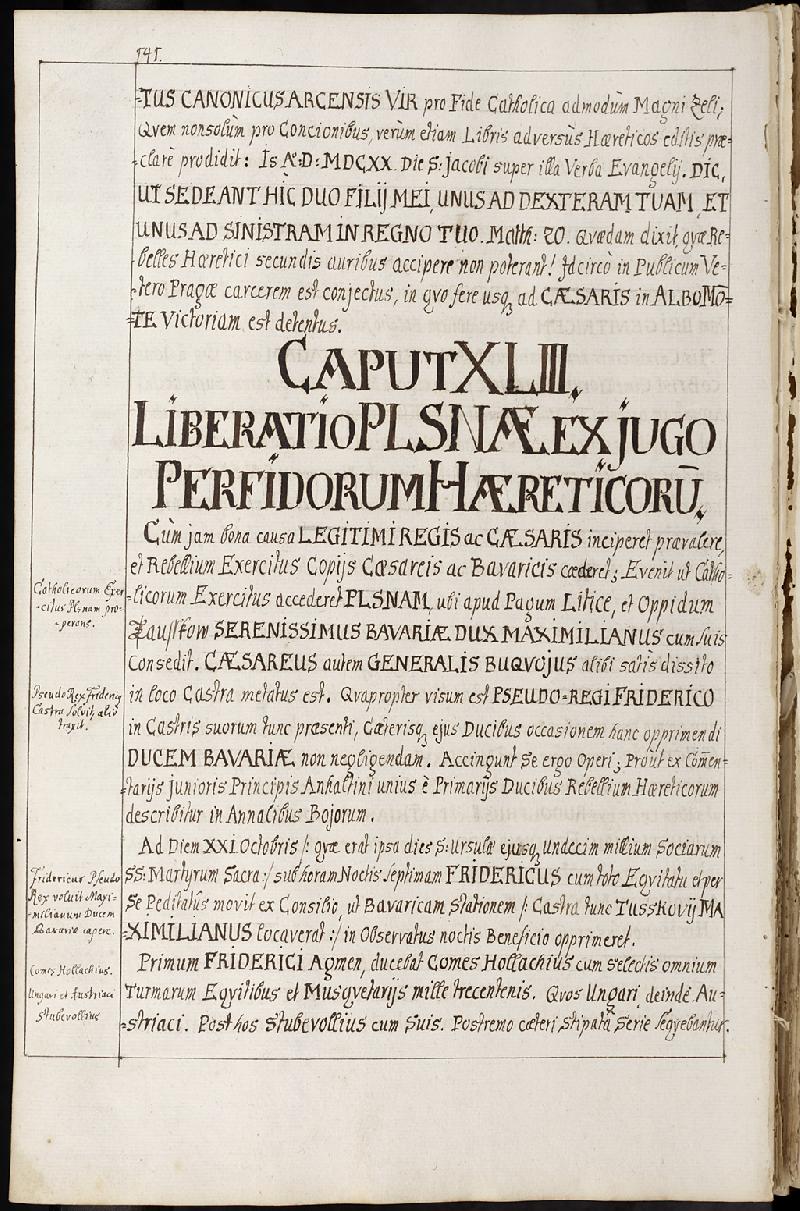 141.
-TUS CANONICUS ARCENSIS VIR pro Fide Catholica admodùm Magni Zeli;
Qvem nonsolùm pro Concionibus, verùm etiam Libris adversùs Hæreticos editis præ-
-clarè prodidit: Is A.D. MDCXX. Die S: Jacobi super illa Verba Evangelij. DIC,
UT SEDEANT HIC DUO FILIJ MEI, UNUS AD DEXTERAM TUAM, ET
UNUS AD SINISTRAM IN REGNO TUO. Matth: 20. Qvædam dixit, qvæ Re-
belles Hæretici secundis auribus accipere non poterant! Idcircò in Publicum Ve-
-tero Pragæ carcerem est conjectus, in qvo fere usq, ad CÆSARIS in ALBO MŌ=
=TE Victoriam est detentus.
CAPUT XLIII.
LIBERATIO PLSNÆ EX JUGO
PERFIDORUM HÆRETICORŪ.
Cùm jam bona causa LEGITIMI REGIS ac CÆSARIS inciperet prævalere,
et Rebellium Exercitus Copijs Cæsareis ac Bavaricis cæderet; Evenit ut Catho-
-licorum Exercitus accederet PLSNAM, ubi apud Pagum Litice, et Oppidum
SERENISSIMUS BAVARIÆ DUX MAXIMILIANUS cum suis
Consedit. CÆSAREUS autem GENERALIS BUQVOJUS alibi satis dissito
in loco Castra metatus est. Qvapropter visum est PSEUDO-REGI FRIDERICO
in Castris suorum tunc præsenti, Cæterisq, ejus Ducibus occasionem hanc opprimendi
DUCEM BAVARIÆ, non negligendam. Accingunt se ergo Operi; Prout ex Com̄en-
-tarijs junioris Principis Anhaltini unius è Primarijs Ducibus Rebellium Hæreticorum
describitur in Annalibus Bojorum.
Ad Diem XXI Octobris /: qvæ erat ipsa dies S: Ursulæ ejusq, undecim millium Sociarum
SS: Martyrum Sacra :/ sub horam Noctis septimam FRIDERICUS cum toto Eqvitatu et per
se Peditatus movit ex Consilio, ut Bavaricam Stationem /: Castra tunc TUSSKOVIJ MA
-XIMILIANUS locaverat :/ in Observatus noctis Beneficio opprimeret.
Primum FRIDERICI Agmen, ducebat Comes Hollachius cum selectis omnium
Turmarum Eqvitibus et Musqvetarijs mille trecentenis. Qvos Ungari deindè Au-
-striaci. Post hos Stubevollius cum Suis. Postremo cæteri stipata Serie seqvebantur.
Catholicorum Exer-
-citus Plsnam pro-
-perans.
PseudoRex Frideric9
Castra Solvit, aliò
Fridericus Pseudo
Rex voluit Maxi-
-milianum Ducem
Bavariæ capere.
Comes Hollachius.
Ungari et Austriaci
Stubevollius